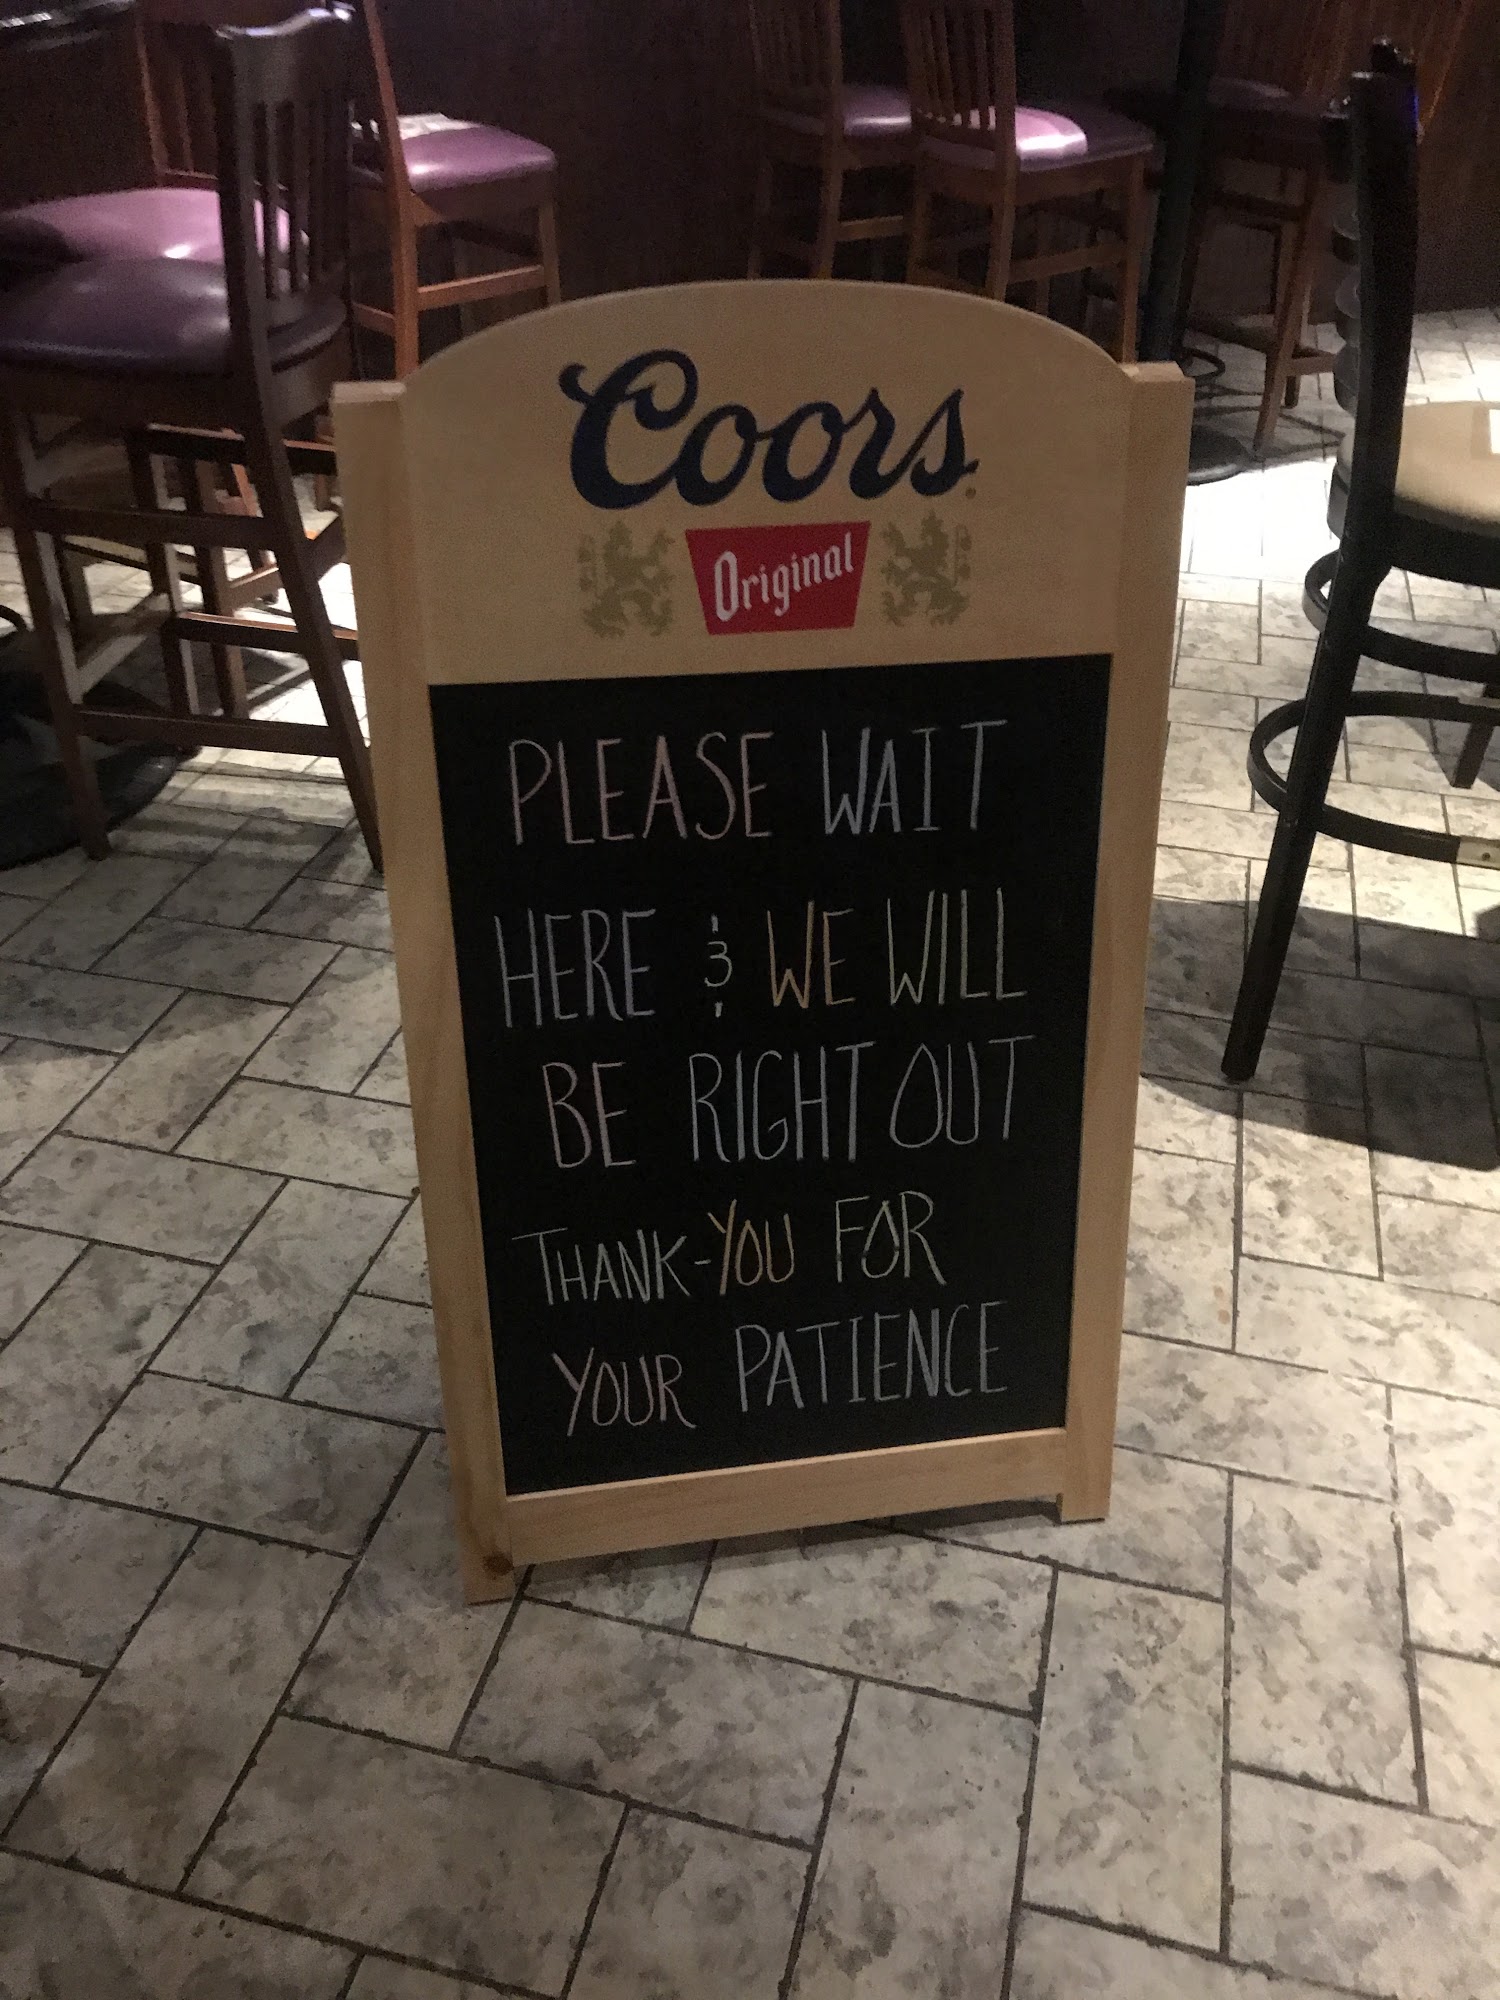 Coors
Original
PLEASE WAIT
HERE & WE WILL
BE RIGHT OUT
THANK-YOU FOR
YOUR PATIENCE